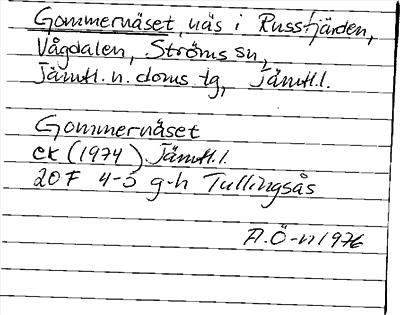 Gommernäset, näs i Russfjärden,
Vågdalen, Ströms sn,
Jämtl. n. doms lg, Jämtl.l.
Gommernäset
ek (1974) Jämtl.l.
20F 4-5 g-h Tullingsås
A.Ö-n 1976